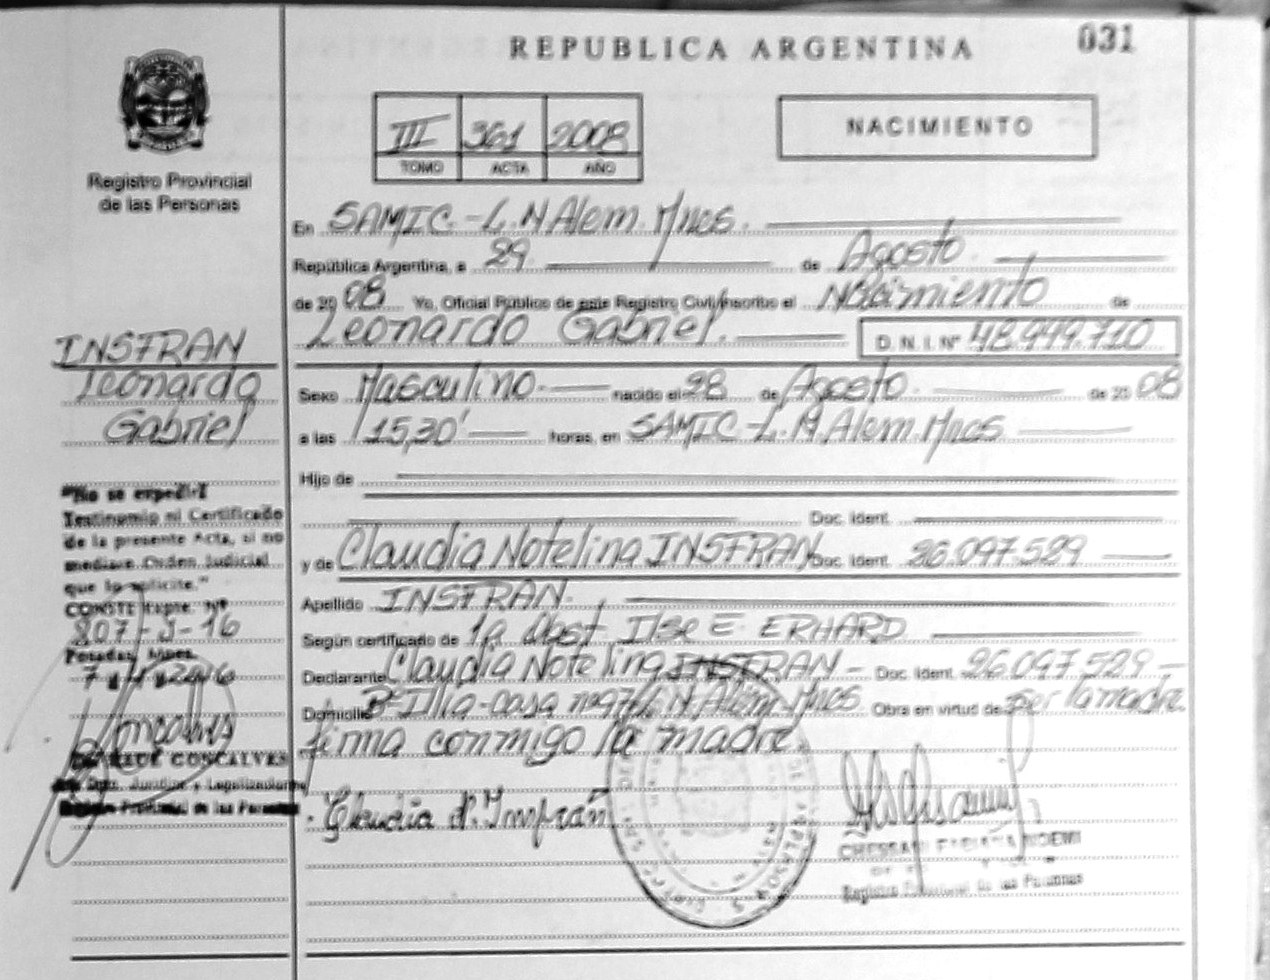 REPUBLICA ARGENTINA
031
III 361 2008
TOMO ACTA AÑO
NACIMIENTO
Registro Provincial
de las Personas
En SAMIC.-L.N Alem. Mnes.
República Argentina, a 29 de Agosto
de 2008 Yo, Oficial Público de este Registro Civil, inscribo el Nacimiento de
Leonardo Gabriel. D.N.I. Nº 48.949.710
Sexo Masculino nacido el 28 de Agosto de 2008
a las 15,30' horas, en SAMIC-L.N.Alem.Mnes
Hijo de
Doc. Ident.
y de Claudia Notelina INSFRAN Doc. Ident. 26.097.529
Apellido INSFRAN
Según certificado de la Obst Ilse E. ERHARD
Declarante Claudia Notelina INSFRAN Doc. Ident. 26.097.529
Domicilio Bº Illia-casa nº97 L N Alem. Mnes Obra en virtud de ser la madre
firma conmigo la madre.
INSFRAN
Leonardo
Gabriel
"No se expedirá
Testimonio ni Certificado
de la presente Acta, si no
mediare Orden Judicial
que lo solicite."
CONSTE Expte. Nº
807-J-16
Posadas, Mnes.
GONCALVES
Dpto. Jurídico y Legalizaciones
Registro Provincial de las Personas
Claudia N. Insfrán
NOEMI
Registro Provincial de las Personas